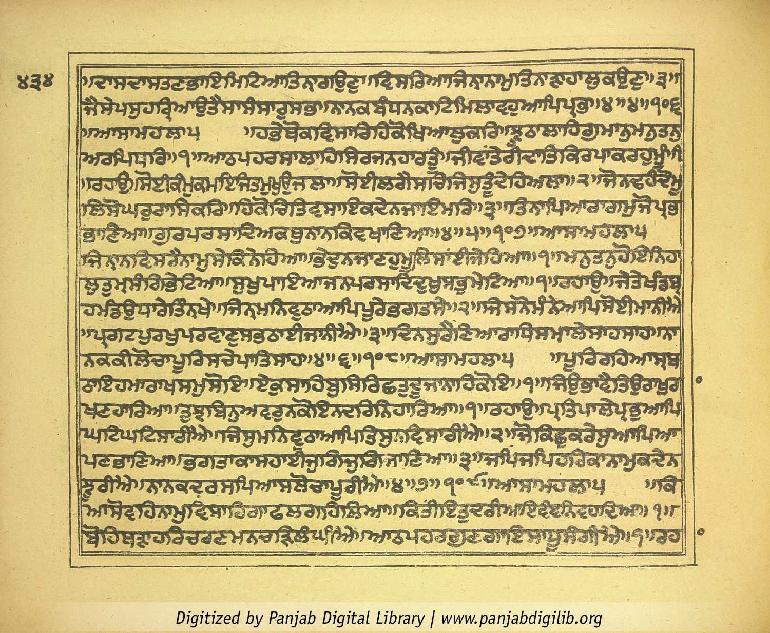 ੪੩੪
॥ਦਾਸਦਾਸਤਣਭਾਇਮਿਟਿਆਤਿਨਾਗਉਣੁ॥ਵਿਸਰਿਆਜਿਨਾਨਾਮੁਤਿਨਾੜਾਹਾਲੁਕਉਣੁ॥੩॥
ਜੈਸੇਪਸੁਹਰ੍ਹਿਆਉਤੈਸਾਸੰਸਾਰੁਸਭ॥ਨਾਨਕਬੰਧਨਕਾਟਿਮਿਲਾਵਹੁਆਪਿਪ੍ਰਭ॥੪॥੪॥੧੦੬
॥ਆਸਾਮਹਲਾ੫ ॥ਹਭੇਥੋਕਵਿਸਾਰਿਹਿਕੋਖਿਆਲੁਕਰਿ॥ਝੂਠਾਲਾਹਿਗੁਮਾਨੁਮਨੁਤਨੁ
ਅਰਪਿਧਰਿ॥੧॥ਆਠਪਹਰਸਾਲਾਹਿਸਿਰਜਨਹਾਰਤੂੰ॥ਜੀਵਾਂਤੇਰੀਦਾਤਿਕਿਰਪਾਕਰਹੁਮੂੰ॥੧
॥ਰਹਾਉ॥ਸੋਈਕੰਮੁਕਮਾਇਜਿਤੁਮੁਖੁਉਜਲਾ॥ਸੋਈਲਗੈਸਚਿਜਿਸੁਤੂੰਦੇਹਿਅਲਾ॥੨॥ਜੋਨਢਹੰਦੋਮੂ
ਲਿਸੋਘਰੁਰਾਸਿਕਰਿ॥ਹਿਕੋਚਿਤਿਵਸਾਇਕਦੇਨਜਾਇਮਰਿ॥੩॥ਤਿਨਾਪਿਆਰਾਰਾਮੁਜੋਪ੍ਰਭ
ਭਾਣਿਆ॥ਗੁਰਪਰਸਾਦਿਅਕਥੁਨਾਨਕਿਵਖਾਣਿਆ॥੪॥੫॥੧੦੭॥ਆਸਾਮਹਲਾ੫
॥ਜਿਨ੍ਹਾਨਵਿਸਰੈਨਾਮੁਸੇਕਿਨੇਹਿਆ॥ਭੇਦੁਨਜਾਣਹੁਮੂਲਿਸਾਂਈਜੇਹਿਆ॥੧॥ਮਨੁਤਨੁਹੋਇਨਿਹਾ
ਲੁਤੁਮ੍ਹਸੰਗਿਭੇਟਿਆ॥ਸੁਖੁਪਾਇਆਜਨਪਰਸਾਦਿਦੁਖੁਸਭੁਮੇਟਿਆ॥੧॥ਰਹਾਉ॥ਜੇਤੇਖੰਡਬ੍ਰ
ਹਮੰਡਉਧਾਰੇਤਿੰਨਖੇ॥ਜਿਨਮਨਿਵੁਠਾਆਪਿਪੂਰੇਭਗਤਸੇ॥੨॥ਜਿਸਨੋਮੰਨੇਆਪਿਸੋਈਮਾਨੀਐ
॥ਪ੍ਰਗਟਪੁਰਖੁਪਰਵਾਣੁਸਭਠਾਈਜਾਨੀਐ॥੩॥ਦਿਨਸੁਰੈਣਿਆਰਾਧਿਸਮਾਲੇਸਾਹਸਾਹ॥ਨਾ
ਨਕਕੀਲੋਚਾਪੂਰਿਸਚੇਪਾਤਿਸਾਹ॥੪॥੬॥੧੦੮॥ਆਸਾਮਹਲਾ੫ ॥ਪੂਰਿਰਹਿਆਸ੍ਰਬ
ਠਾਇਹਮਾਰਾਖਸਮੁਸੋਇ॥ਏਕੁਸਾਹਿਬੁਸਿਰਿਛਤੁਦੂਜਾਨਾਹਿਕੋਇ॥੧॥ਜਿਉਭਾਵੈਤਿਉਰਾਖੁਰਾ
ਖਣਹਾਰਿਆ॥ਤੁਝਬਿਨੁਅਵਰੁਨਕੋਇਨਦਰਿਨਿਹਾਰਿਆ॥੧॥ਰਹਾਉ॥ਪ੍ਰਤਿਪਾਲੇਪ੍ਰਭੁਆਪਿ
ਘਟਿਘਟਿਸਾਰੀਐ॥ਜਿਸੁਮਨਿਵੁਠਾਆਪਿਤਿਸੁਨਵਿਸਾਰੀਐ॥੨॥ਜੋਕਿਛੁਕਰੇਸੁਆਪਿਆ
ਪਣਭਾਣਿਆ॥ਭਗਤਾਕਾਸਹਾਈਜੁਗਿਜੁਗਿਜਾਣਿਆ॥੩॥ਜਪਿਜਪਿਹਰਿਕਾਨਾਮੁਕਦੇਨ
ਝੂਰੀਐ॥ਨਾਨਕਦਰਸਪਿਆਸਲੋਚਾਪੂਰੀਐ॥੪॥੭॥੧੦੯॥ਆਸਾਮਹਲਾ੫ ॥ਕਿ
ਆਸੋਵਹਿਨਾਮੁਵਿਸਾਰਿਗਾਫਲਗਹਿਲਿਆ॥ਕਿਤੀਇਤੁਦਰੀਆਇਵੰਞਨਿਵਹਦਿਆ॥੧॥
ਬੋਹਿਥੜਾਹਰਿਚਰਣਮਨਚੜਿਲੰਘੀਐ॥ਆਠਪਹਰਗੁਣਗਾਇਸਾਧੂਸੰਗੀਐ॥੧॥ਰਹ
Digitized by Panjab Digital Library | www.panjabdigilib.org